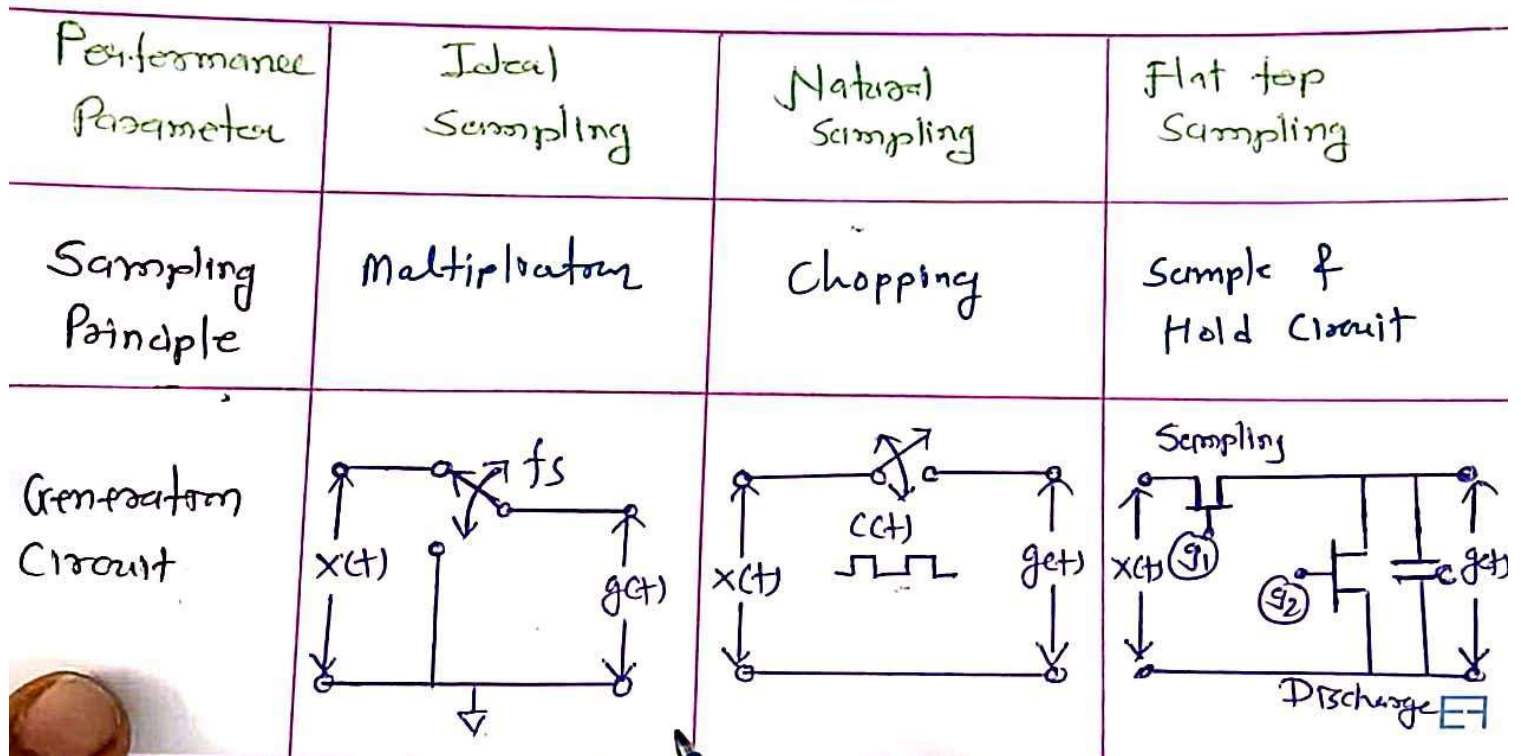 Performance
Parameter
Ideal
Sampling
Natural
Sampling
Flat top
Sampling
Sampling
Principle
Multiplication
Chopping
Sample &
Hold Circuit
Generation
Circuit
fs
x(t)
g(t)
C(t)
x(t)
g(t)
Sampling
x(t)
g1
g2
C
g(t)
Discharge
EF